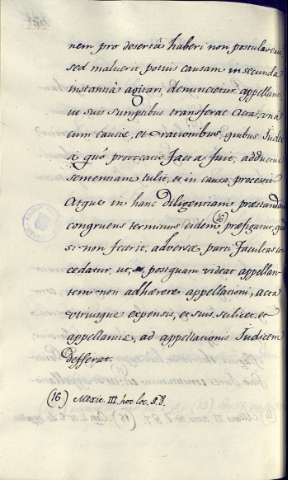 nem pro desertâ haberi non postularet
sed maluerit potius causam in secunda
instantiâ agitari, denuncietur appellanti
ut suis sumptibus transferat acta, una
cum causis, et rationibus, quibus Iudex
à quó provocatio facta fuit, adductus
sententiam tulit, et in causa processit
Atque in hanc diligentiam præstandam
congruens terminus eidem præfigatur, (16)
si non fecerit, adversæ parti facultas con
cedatur, ut, postquam videat appellan
tem non adhærere appellationi, acta
utriusque expensis, et suis scilicet et
appellantis, ad appellationis Iudicem
defferat.
(16) Mexic. III. hoc loc. §.8.